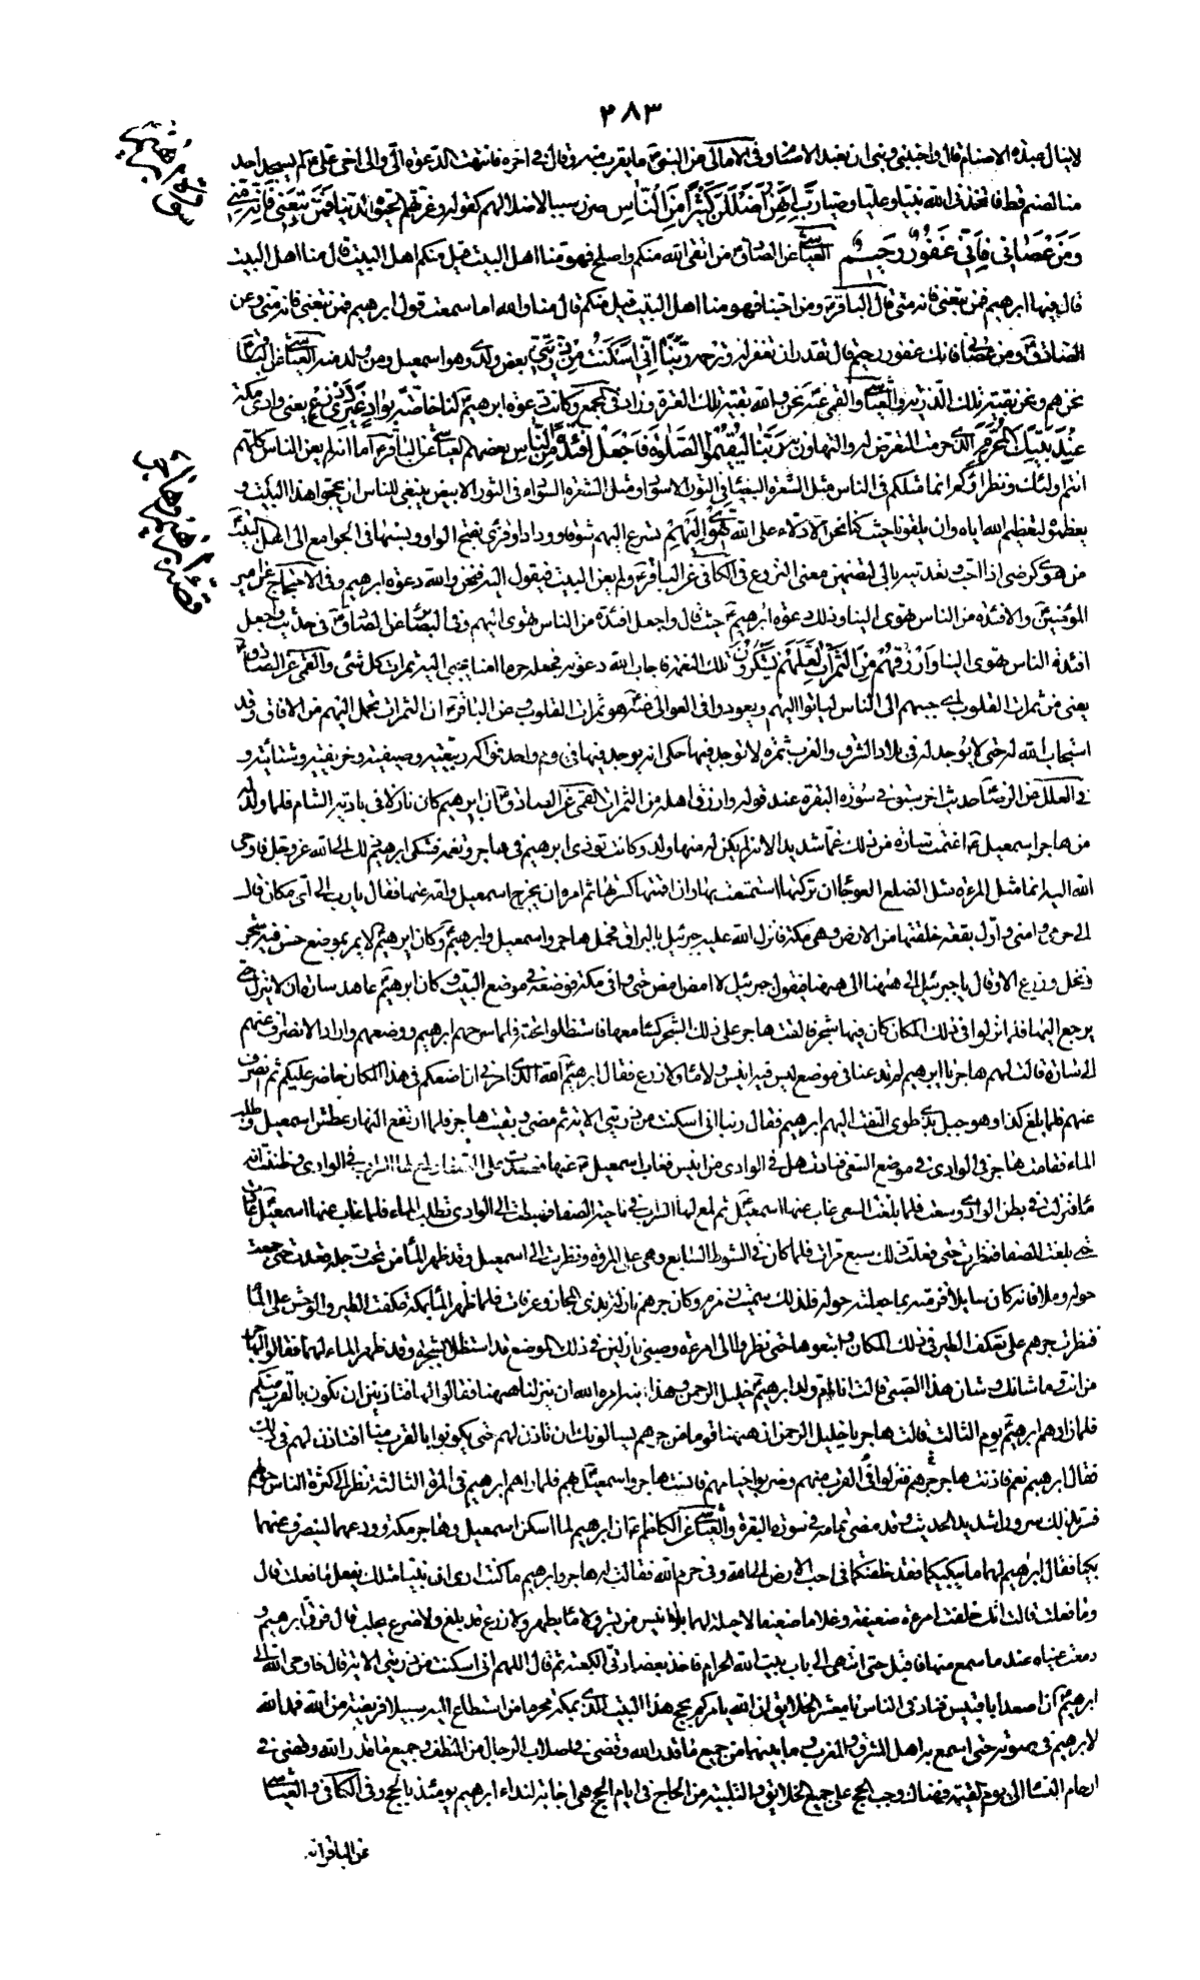 ٢٨٣
سورة ابرهيم
لاينال عبدة الاصنام قال واجنبنى وبنى ان نعبد الاصنام وفى الامالى عن النبى ما يقرب منه وقال فى اخره فانتهت الدعوة الى والى اخى على لم يسجد احد
منا لصنم قط فاتخذنى الله نبيا وعليا وصيا رَبِّ اِنَّهُنَّ اَضْلَلْنَ كَثيرًا مِنَ النّاسِ صرن سببا لاضلالهم كقوله وغرتهم الحيوة الدنيا فَمَنْ تَبِعَنى فَاِنَّهُ مِنّى
وَمَنْ عَصانى فَاِنَّكَ غَفُورٌ رَحيمٌ العياشى عن الصادق من اتقى الله منكم واصلح فهو منا اهل البيت قيل منكم اهل البيت قال منا اهل البيت
قال فيها ابرهيم فمن تبعنى فانه منى قال الباقر ومن احبنا فهو منا اهل البيت قيل منكم قال منا والله اما سمعت قول ابرهيم فمن تبعنى فانه منى وعن
الصادق ومن عصانى فانك غفور رحيم قال تقدر ان تغفر له وترحمه رَبَّنا اِنّى اَسْكَنْتُ مِنْ ذُرِّيَّتى بعض ولدى وهو اسمعيل ومن ولد منه العياشى عن الباقر
نحن هم ونحن بقية تلك الذرية والعياشى والقمى عنه نحن والله بقية تلك العترة وزاد فى المجمع وكانت دعوة ابرهيم لنا خاصة بِوادٍ غَيْرِ ذى زَرْعٍ يعنى وادى مكة
عِنْدَ بَيْتِكَ الْمُحَرَّمِ الذى حرمت التعرض له والتهاون به رَبَّنا لِيُقيمُوا الصَّلوةَ فَاجْعَلْ اَفْئِدَةً مِنَ النّاسِ بعضهم العياشى عن الباقر اما انه لم يعن الناس كلهم
انتم اولئك ونظراؤكم انما مثلكم فى الناس مثل الشعرة البيضاء فى الثور الاسود او مثل الشعرة السوداء فى الثور الابيض ينبغى للناس ان يحجوا هذا البيت و
يعظموه لتعظيم الله اياه وان يلقونا حيث كنا نحن الادلاء على الله تَهْوى اِلَيْهِمْ تسرع اليهم شوقا وودادا وقرئ بفتح الواو ونسبها فى الجوامع الى اهل البيت
قصة ابرهيم وهاجر
من هوى كرضى اذا احب وتعديته بالى لتضمين معنى النزوع فى الكافى عن الباقر ولم يعن البيت فيقول اليه فنحن والله دعوة ابرهيم وفى الاحتجاج عن امير
المؤمنين والافئدة من الناس تهوى الينا وذلك دعوة ابرهيم حيث قال واجعل افئدة من الناس تهوى اليهم وفى البصائر عن الصادق فى حديث وجعل
افئدة الناس تهوى الينا وَارْزُقْهُمْ مِنَ الثَّمَراتِ لَعَلَّهُمْ يَشْكُرُونَ تلك النعمة فاجاب الله دعوته فجعله حرما امنا يجبى اليه ثمرات كل شئ والقمى عن الصادق
يعنى من ثمرات القلوب اى حببهم الى الناس لياتوا اليهم ويعودوا فى العوالى عنه هو ثمرات القلوب وعن الباقر ان الثمرات تحمل اليهم من الافاق وقد
استجاب الله له حتى لا يوجد له فى بلاد الشرق والغرب ثمرة لا توجد فيها حكى انه يوجد فيها فى يوم واحد فواكه ربيعية وصيفية وخريفية وشتائية و
فى العلل عن الرضا حديث اخر سبق فى سورة البقرة عند قوله وارزق اهله من الثمرات القمى عن الصادق ان ابرهيم كان نازلا فى بادية الشام فلما ولد له
من هاجر اسمعيل اغتمت سارة من ذلك غما شديدا لانه لم يكن له منها ولد وكانت تؤذى ابرهيم فى هاجر وتغمه فشكى ابرهيم ذلك الى الله عز وجل فاوحى
الله اليه انما مثل المرءة مثل الضلع العوجاء ان تركتها استمتعت بها وان اقمتها كسرتها ثم امره ان يخرج اسمعيل وامه عنها فقال يا رب الى اى مكان قال
الى حرمى وامنى واول بقعة خلقتها من الارض وهى مكة فانزل الله عليه جبرئيل بالبراق فحمل هاجر واسمعيل وابرهيم وكان ابرهيم لا يمر بموضع حسن فيه شجر
ونخل وزرع الا وقال يا جبرئيل الى ههنا الى ههنا فيقول جبرئيل لا امض امض حتى وافى مكة فوضعه فى موضع البيت وكان ابرهيم عاهد سارة ان لا ينزل حتى
يرجع اليها فلما نزلوا فى ذلك المكان كان فيها شجر فالقت هاجر على ذلك الشجر كساء كان معها فاستظلوا تحته فلما سرحهم ابرهيم ووضعهم واراد الانصراف عنهم
الى سارة قالت لهم هاجر يا ابرهيم لم تدعنا فى موضع ليس فيه انيس ولا ماء ولا زرع فقال ابرهيم الله الذى امرنى ان اضعكم فى هذا المكان حاضر عليكم ثم انصرف
عنهم فلما بلغ كداء وهو جبل بذى طوى التفت اليهم ابرهيم فقال ربنا انى اسكنت من ذريتى الاية ثم مضى وبقيت هاجر فلما ارتفع النهار عطش اسمعيل وطلب
الماء فقامت هاجر فى الوادى فى موضع السعى فنادت هل فى الوادى من انيس فغاب اسمعيل عنها فصعدت على الصفا ولمع لها السراب فى الوادى وظنت انه
ماء فنزلت فى بطن الوادى وسعت فلما بلغت المسعى غاب عنها اسمعيل ثم لمع لها السراب فى ناحية الصفا فهبطت الى الوادى تطلب الماء فلما غاب عنها اسمعيل عادت
حتى بلغت الصفا فنظرت حتى فعلت ذلك سبع مرات فلما كان فى الشوط السابع وهى على المروة ونظرت الى اسمعيل وقد ظهر الماء من تحت رجله فعدت حتى جمعت
حوله رملا فانه كان سايلا فزمته بما جعلته حوله فلذلك سميت زمزم وكان جرهم نازلة بذى المجاز وعرفات فلما ظهر الماء بمكة عكفت الطير والوحش على الماء
فنظرت جرهم على تعكف الطير فى ذلك المكان واتبعوها حتى نظروا الى امرءة وصبى نازلين فى ذلك الموضع قد استظلا بشجرة وقد ظهر الماء لهما فقالوا لهاجر
من انت وما شانك وشان هذا الصبى قالت انا ام ولد ابرهيم خليل الرحمن وهذا ابنه امره الله ان ينزلنا ههنا فقالوا لها فتاذنين ان نكون بالقرب منكم
فلما زارهم ابرهيم يوم الثالث قالت هاجر يا خليل الرحمن ان ههنا قوما من جرهم يسالونك ان تاذن لهم حتى يكونوا بالقرب منا افتاذن لهم فى ذلك
فقال ابرهيم نعم فاذنت هاجر جرهم فنزلوا بالقرب منهم وضربوا خيامهم فانست هاجر واسمعيل بهم فلما زارهم ابرهيم فى المرة الثالثة نظر الى كثرة الناس حولهم
فسر بذلك سرورا شديدا الحديث وقد مضى تمامه فى سورة البقرة والعياشى عن الكاظم ان ابرهيم لما اسكن اسمعيل وهاجر مكة وودعهما لينصرف عنهما
بكيا فقال ابرهيم لهما ما يبكيكما فقد خلفتكما فى احب الارض الى الله وفى حرم الله فقالت له هاجر يا ابرهيم ما كنت ارى ان نبيا مثلك يفعل ما فعلت قال
وما فعلت قالت انك خلفت امرءة ضعيفة وغلاما ضعيفا لا حيلة لهما بلا انيس من بشر ولا ماء يظهر ولا زرع قد بلغ ولا ضرع يحلب قال فرق ابرهيم و
دمعت عيناه عند ما سمع منها فاقبل حتى انتهى الى باب بيت الله الحرام فاخذ بعضادتى الكعبة ثم قال اللهم انى اسكنت من ذريتى الاية قال فاوحى الله الى
ابرهيم ان اصعد ابا قبيس فناد فى الناس يا معشر الخلايق ان الله يامركم بحج هذا البيت الذى بمكة محرما من استطاع اليه سبيلا فريضة من الله فمد الله
لابرهيم فى صوته حتى اسمع به اهل المشرق والمغرب وما بينهما من جميع ما قدر الله وقضى فى اصلاب الرجال من النطف وجميع ما قدر الله وقضى فى
ارحام النساء الى يوم القيمة فهناك وجب الحج على جميع الخلايق والتلبية من الحاج فى ايام الحج هى اجابة لنداء ابرهيم يومئذ بالحج وفى الكافى والعياشى
عن الباقر انه